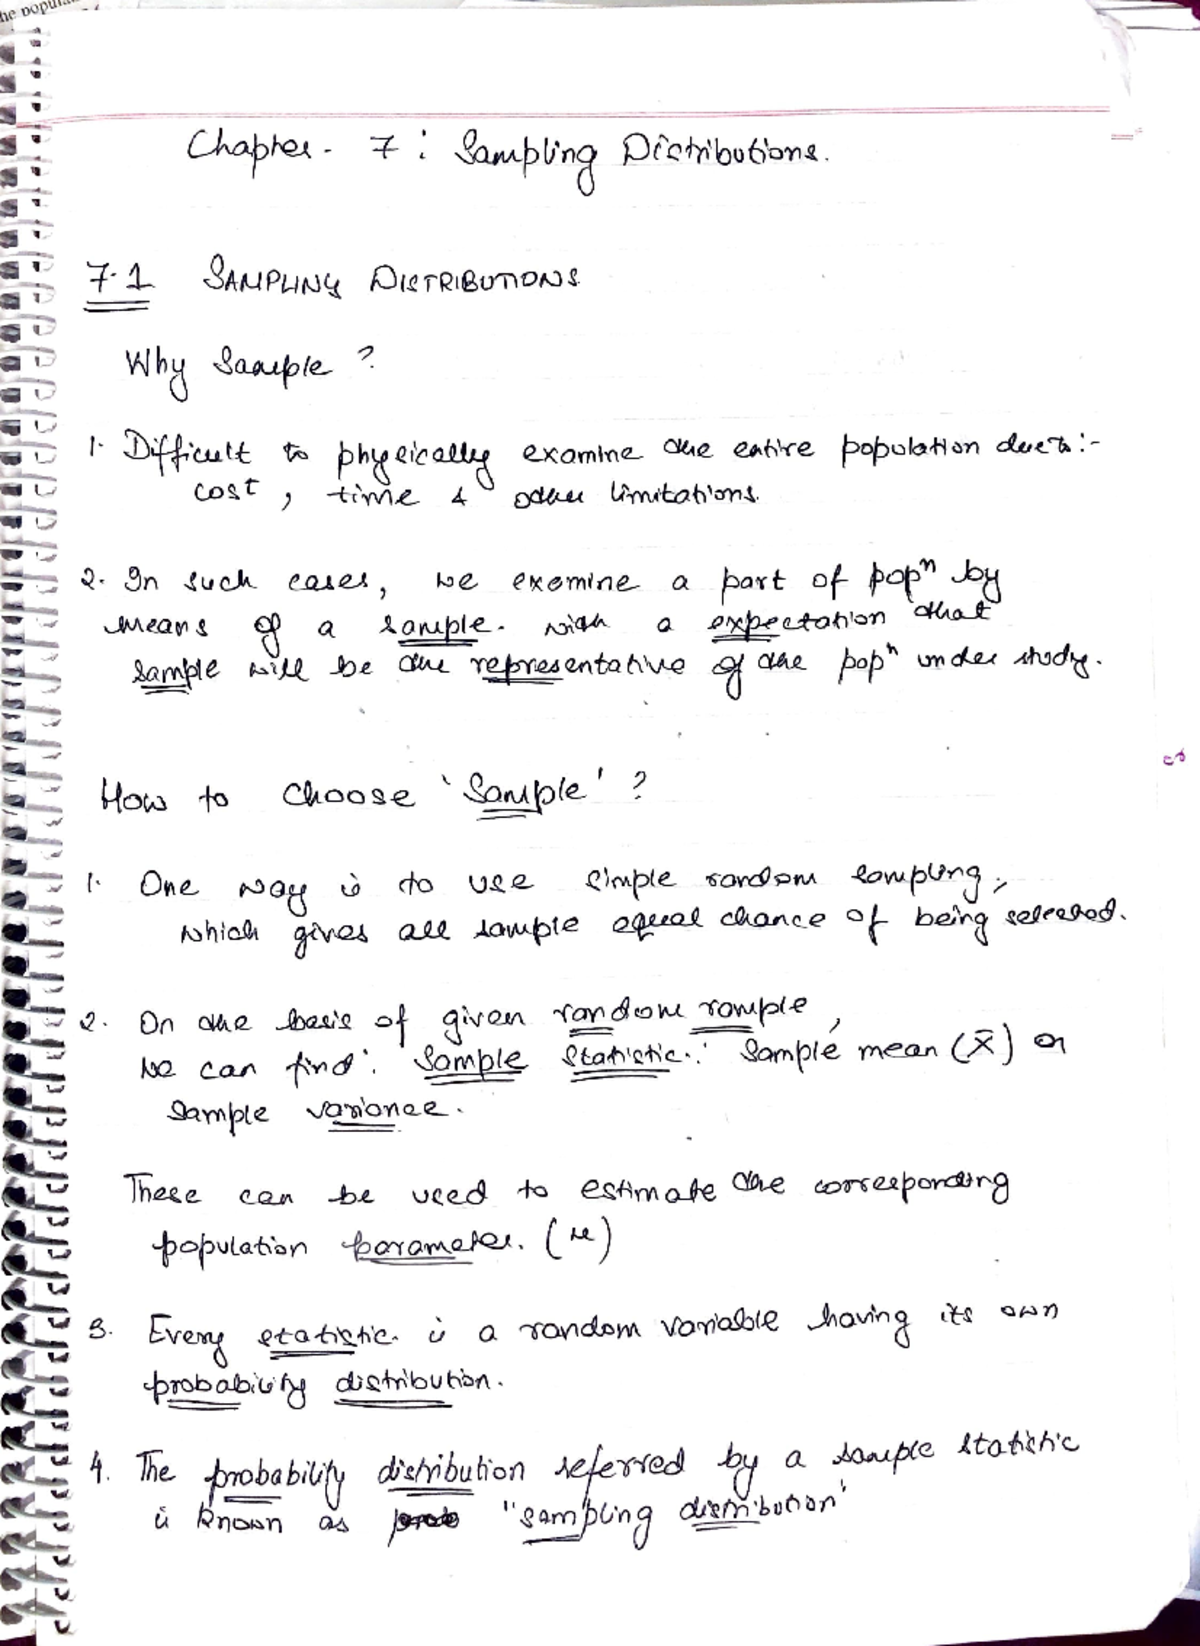 he popul
Chapter - 7 : Sampling Distributions.
7.1 SAMPLING DISTRIBUTIONS
Why Sample ?
1. Difficult to physically examine the entire population due to :-
cost, time & other limitations.
2. In such cases, we examine a part of popⁿ by
means of a sample. with a expectation that
sample will be the representative of the popⁿ under study.
How to choose 'Sample' ?
1. One way is to use simple random sampling,
which gives all sample equal chance of being selected.
2. On the basis of given random sample,
we can find : Sample Statistic : Sample mean (x̄) or
sample variance.
These can be used to estimate the corresponding
population parameter. (μ)
3. Every statistic is a random variable having its own
probability distribution.
4. The probability distribution referred by a sample statistic
is known as "sampling distribution"